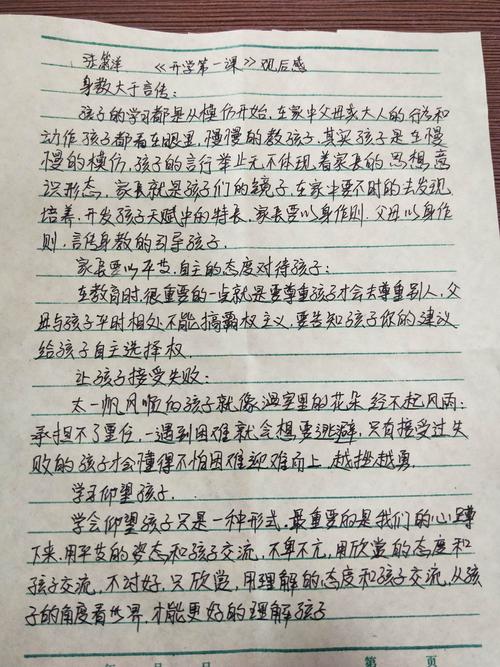 张 洋 《开学第一课》观后感
身教大于言传：
孩子的学习都是从模仿开始，在家中父母亲大人的行为和
动作孩子都看在眼里，慢慢的教孩子，其实孩子是在慢
慢的模仿，孩子的言行举止无不体现着家长的思想，意
识形态，家长就是孩子们的镜子，在家中要不时的去发现
培养，开发孩子天赋中的特长，家长要以身作则，父母以身作
则，言传身教的引导孩子。
家长要以平等，自主的态度对待孩子：
在教育时，很重要的一点就是要尊重孩子才会去尊重别人，父
母与孩子平时相处不能搞霸权主义，要告知孩子你的建议
给孩子自主选择权。
让孩子接受失败：
太一帆风顺的孩子就像温室里的花朵经不起风雨；
承担不了重任，一遇到困难就会想要逃避，只有接受过失
败的孩子才会懂得不怕困难迎难而上，越挫越勇。
学习仰望孩子，
学会仰望孩子只是一种形式，最重要的是我们的心蹲
下来，用平等的姿态和孩子交流，不卑不亢，用欣赏的态度和
孩子交流，不讨好，只欣赏，用理解的态度和孩子交流，从孩
子的角度看世界，才能更好的理解孩子
年 月 日 第 页